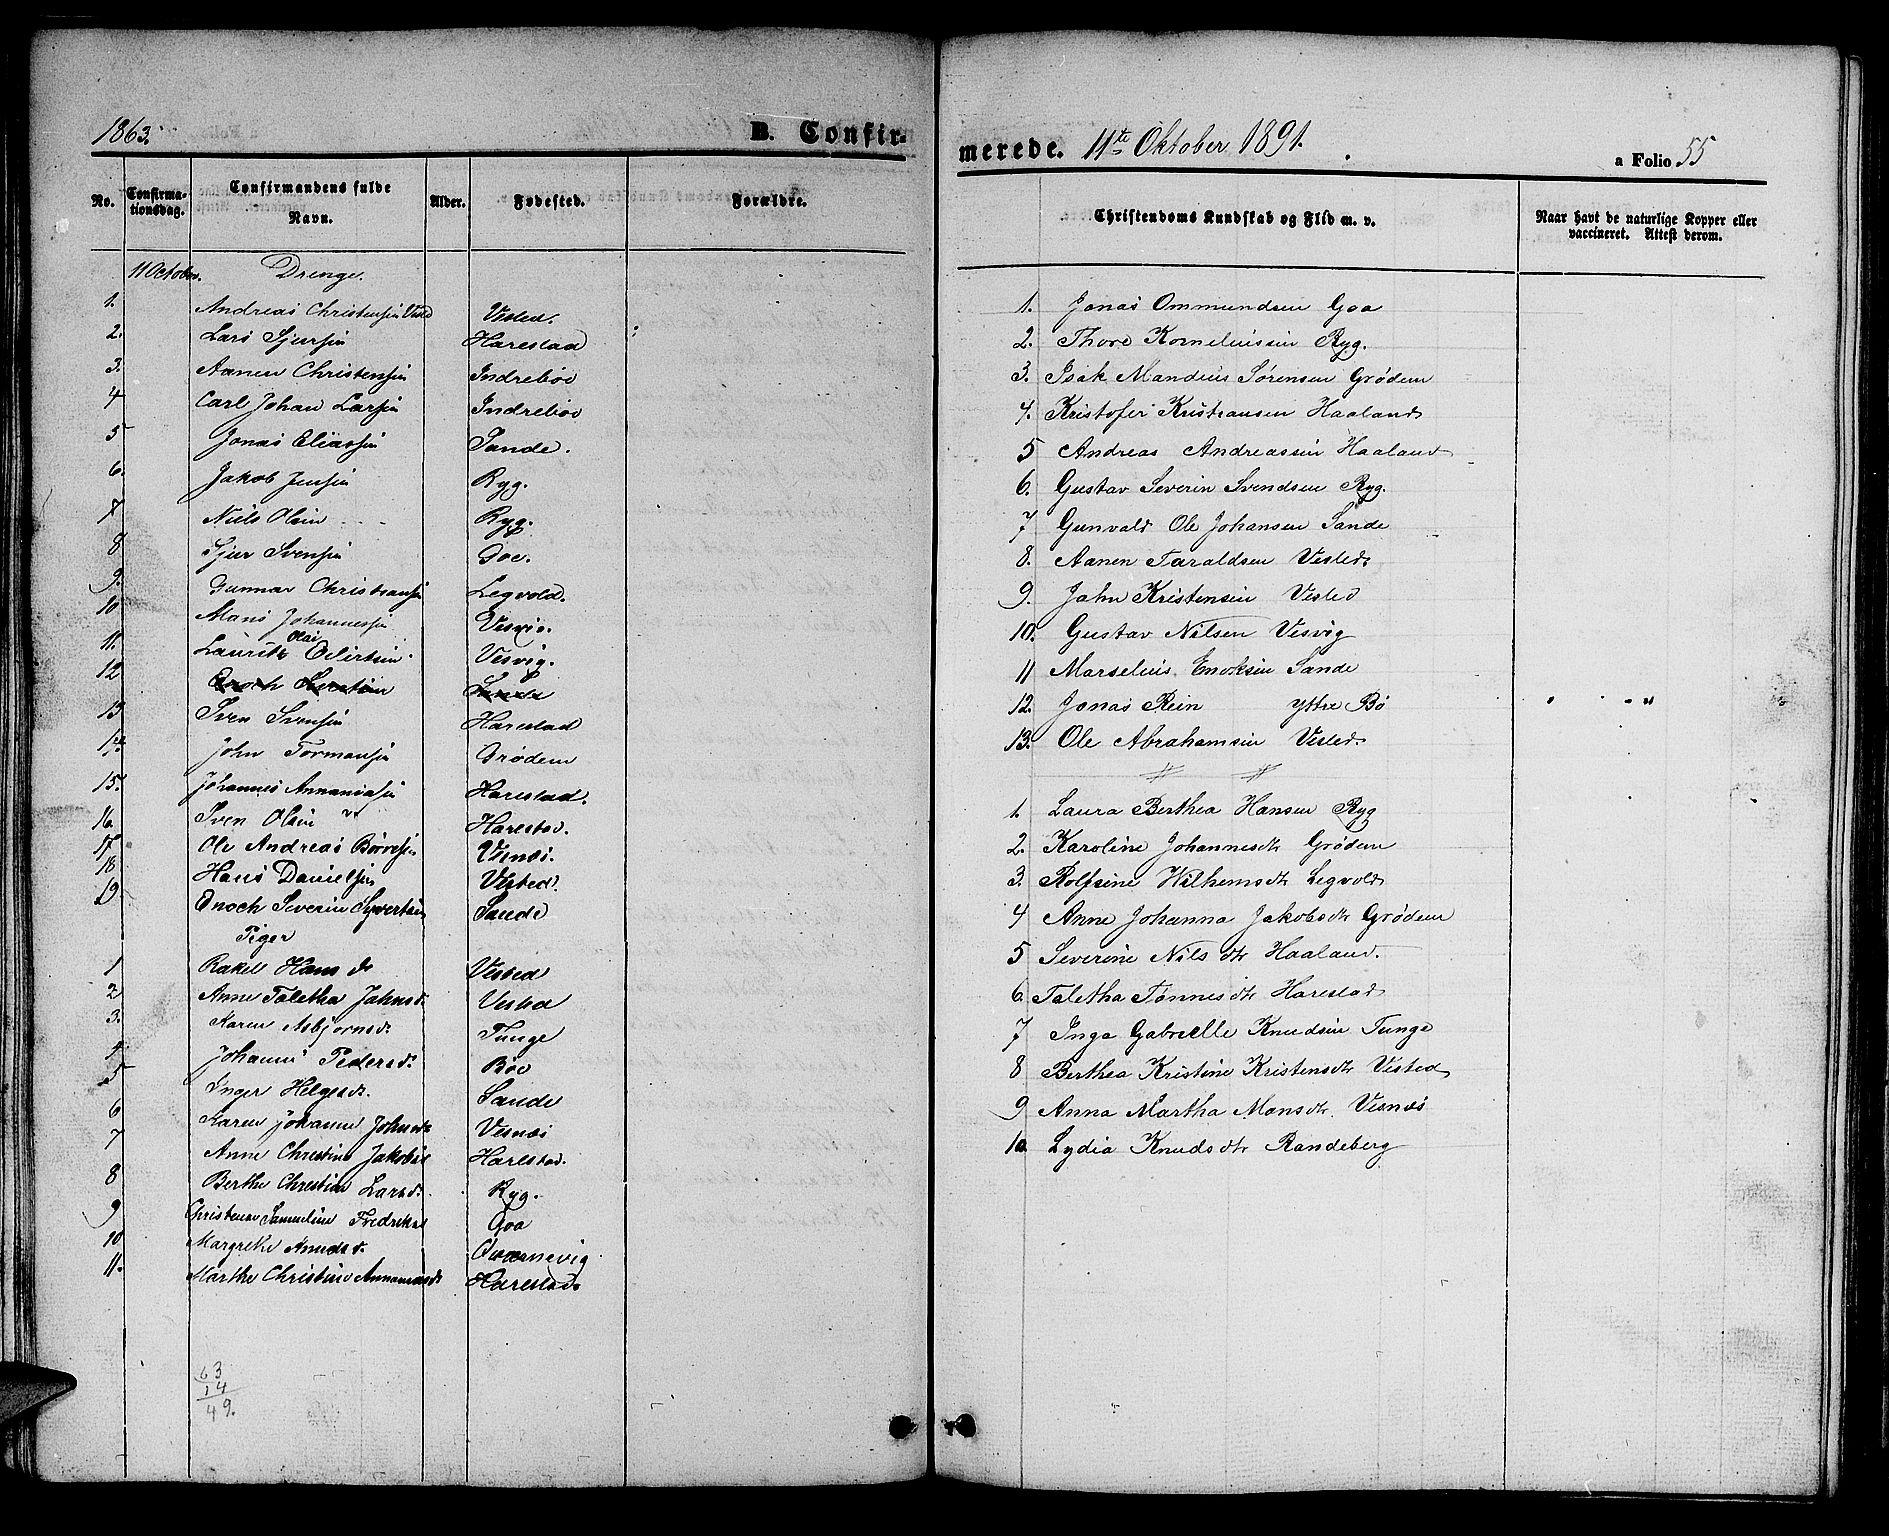 1863.
B. Confir-
No.
Confirma-
tionsdag.
Confirmandens fulde
Navn.
Alder.
Fødested.
Forældre.
11 October. Drenge.
1. Andreas Christensen Vested Vested.
2. Lars Sjursen Harestad
3. Aanen Christensen Indreboe
4 Carl Johan Larsen Indreboe
5 Jonas Eliassen Sande.
6. Jakob Jensen Ryg.
7 Niels Olsen Ryg.
8 Sjur Svensen Goe.
9. Gunnar Christiansen Legvold.
10 Mons Johannessen Vesvig.
11. Lauritz Olai Evertsen Vesvig.
12 Enoch Sande
13 Sven Svensen Harestad
14. John Tormansen Grødem
15. Johannes Annaniasen Harestad.
16. Sven Olsen Harestad.
17. Ole Andreas Børresen Visnæs.
18 Hans Danielsen Vested.
19 Enoch Severin Syvertsen Sande
Piger
1 Rakel Hans dr Vested
2 Anne Taletha Johnsd. Vested
3. Karen Asbjornsd. Tunge
4. Johanne Pedersd. Böe
5 Inger Helgesd. Sande
6 Karen Johanne Johnsdr Vesnæs
7 Anne Christine Jakobsd Harestad.
8 Berthe Christine Larsd. Ryg.
9 Christense Samueline Fredriksd Goa
10 Margrethe Knudsd. Qværnevig
11. Marthe Christine Annaniasd Harestad.
63
14
49.
merede. 11te Oktober 1891.
a Folio 55
Christendoms Kundskab og Flid m. v.
Naar havt de naturlige Kopper eller
vaccineret. Attest derom.
1. Jonas Ommundsen Goa
2. Thore Korneliussen Ryg.
3. Isak Mandius Sørensen Grødem
4. Kristofer Kristiansen Haaland
5 Andreas Andreassen Haaland
6. Gustav Severin Svendsen Ryg.
7 Gunvald Ole Johansen Sande
8. Aanen Taraldsen Vested.
9. John Kristensen Vested
10. Gustav Nilsen Vesvig
11 Marselius Enoksen Sande
12. Jonas Rein Yttre Bö
13. Ole Abrahamsen Vested.
1. Laura Berthea Hansen Ryg
2. Karoline Johannesdtr Grødem
3. Rolfsine Wilhemsdtr Legvold
4 Anne Johanna Jakobsdtr Grødem
5 Severine Nilsdtr Haaland.
6. Taletha Tønnesdtr Harestad
7 Inga Gabrielle Knudsen Tunge
8 Berthea Kristine Kristensdtr Vested
9 Anna Martha Monsdtr. Visnæs
10 Lydia Knudsdtr Randeberg